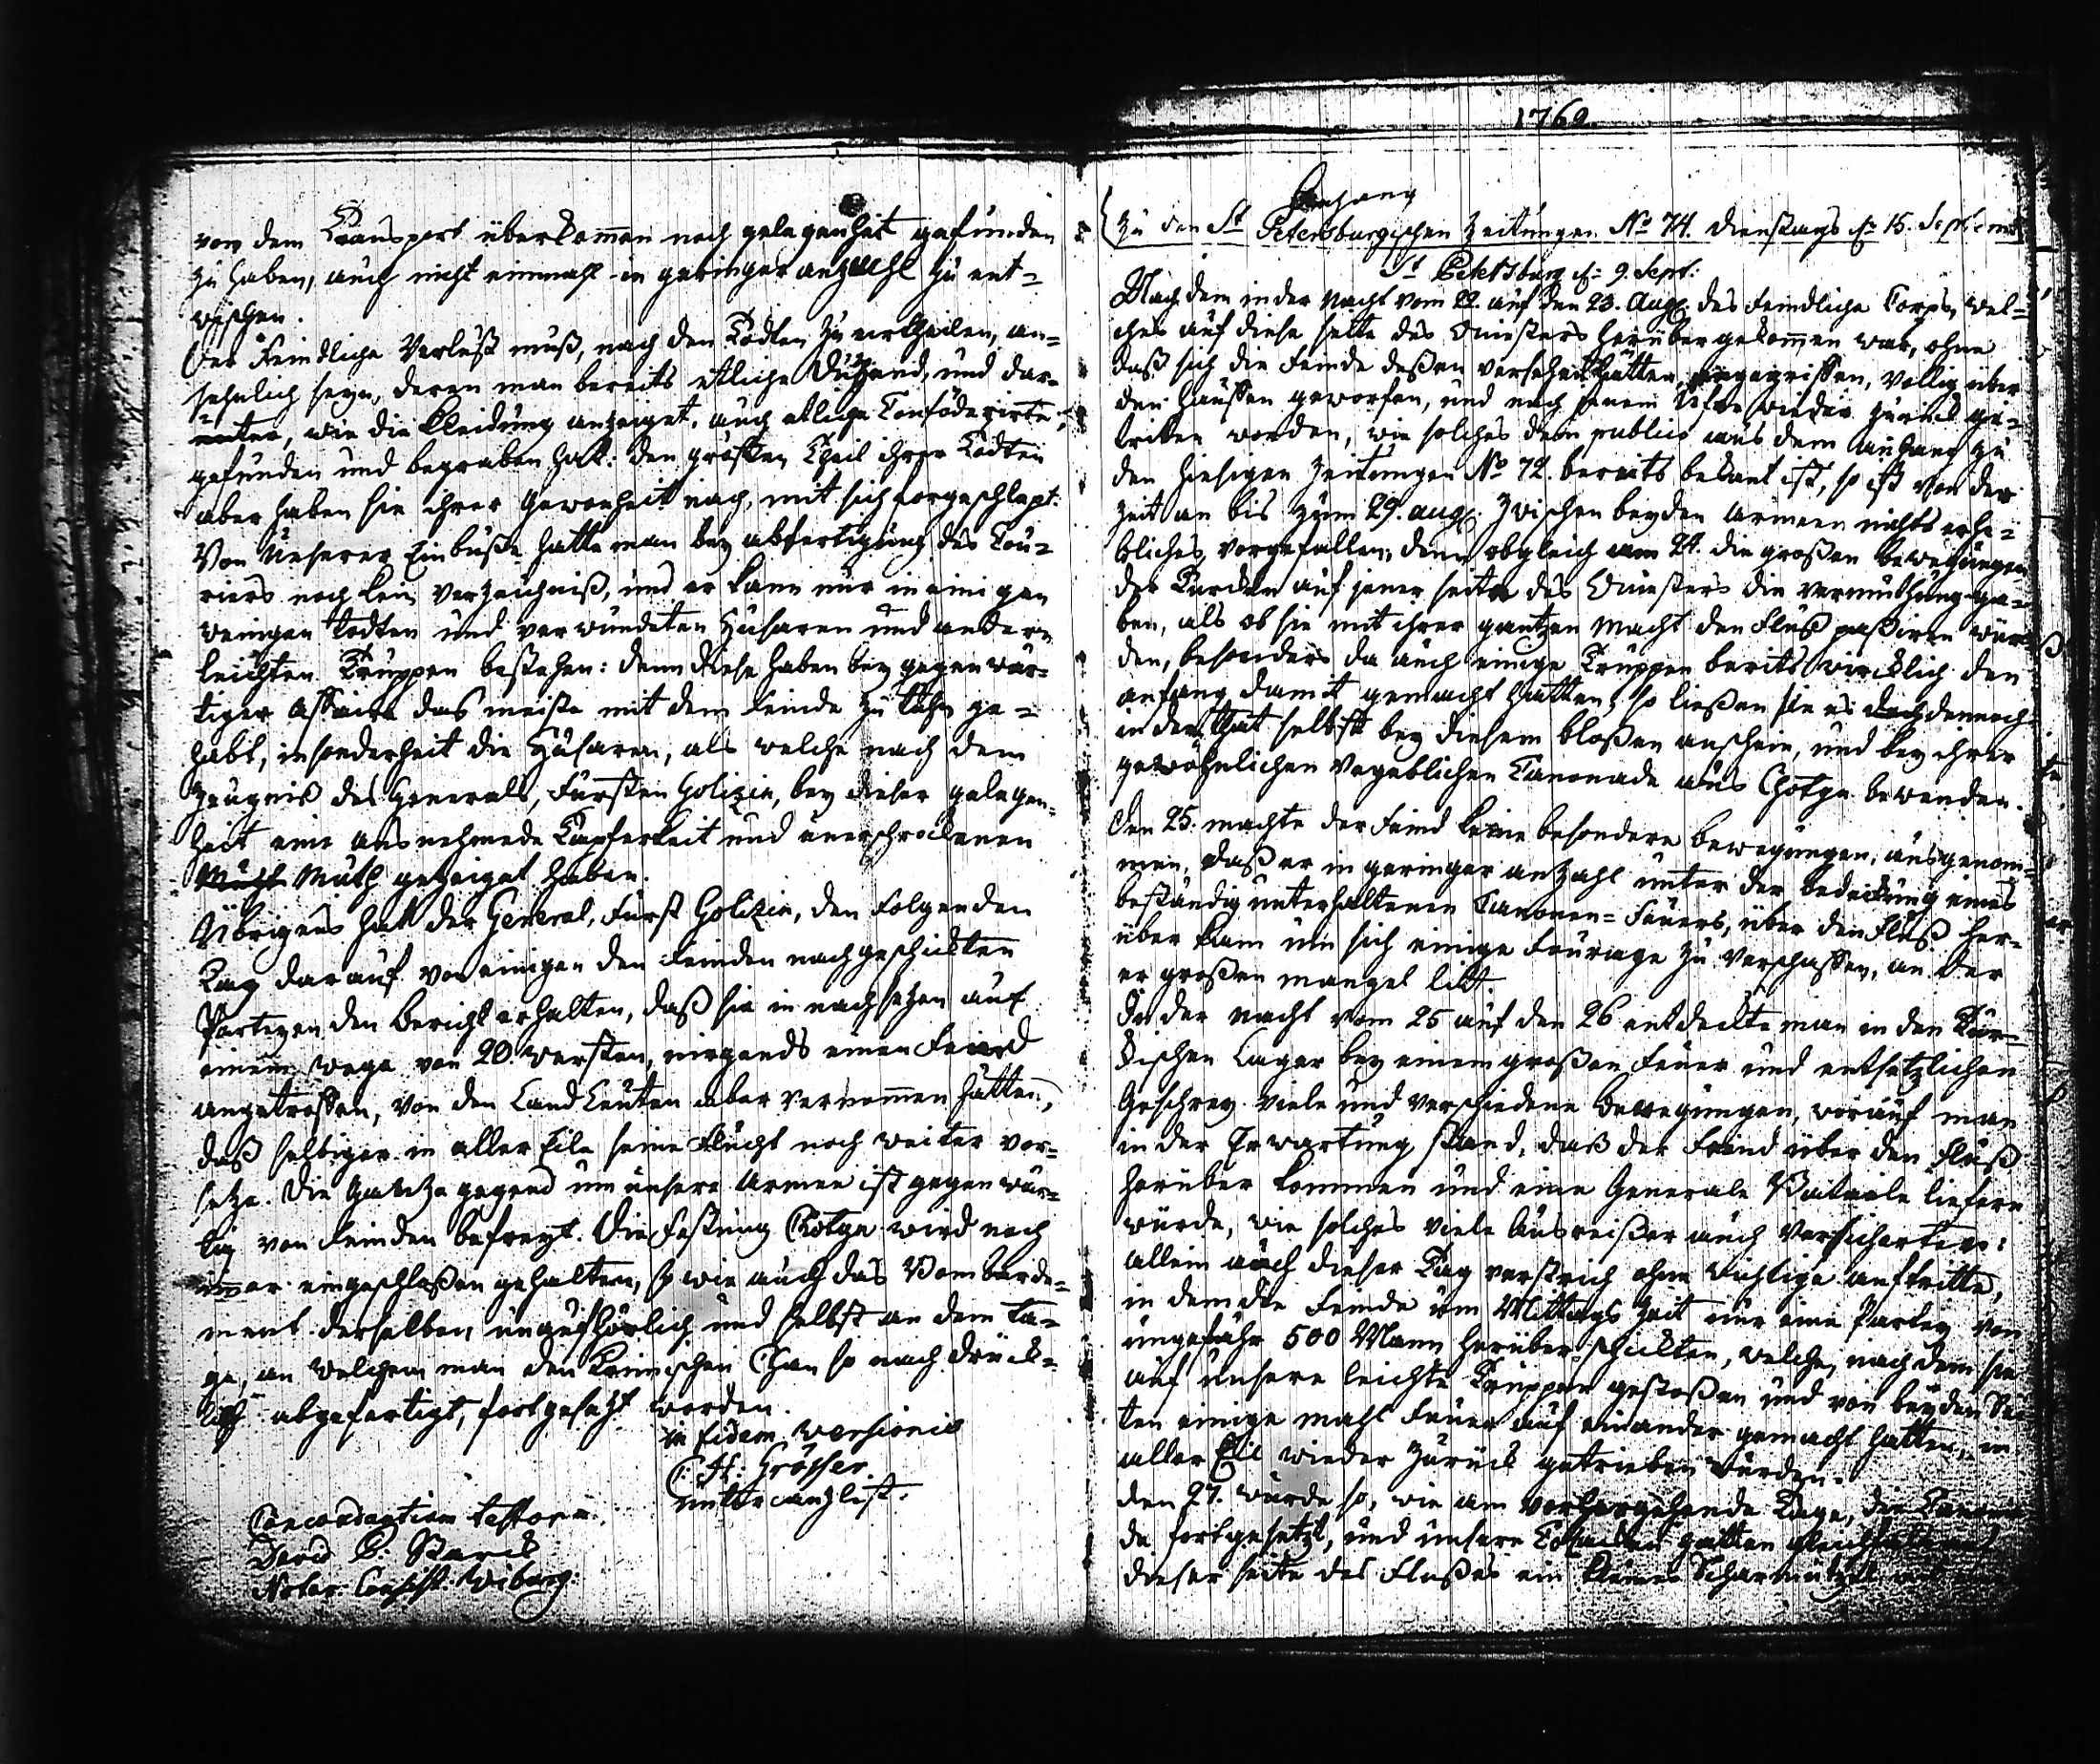 von dem Transport überkommen noch gelegenheit gefunden
zu haben, auch nicht einmahl in geringer anzahl zu ent-
wischen.
Der Feindliche Verlust muß, nach den Todten zu urtheilen, an-
sehnlich seyn, deren man bereits etliche Dutzend, und dar-
unter, wie die Kleidung anzeiget, auch etliche Confoderirte,
gefunden und begraben hat: den größten Theil ihrer Todten
aber haben sie ihrer Gewonheit nach, mit sich forgeschlept.
Von Unserer Einbuße hatte man bey abfertigung des Cou-
riers noch kein Verzeichniß, und er kann nur in einigen
wenigen Todten und verwundeten Husaren und andern
leichten Truppen bestehen: denn diese haben bey gegenwär-
tiger Affaire das meiste mit dem Feinde zu thun ge-
habt, in sonderheit die Husaren, als welche nach dem
Zeugniß des Generals, Fürsten Golizin, bey dieser gelegen-
heit eine ausnehmede Tapferkeit und unerschrockenen
Muth gezeiget haben.
Übrigens hatt der General, Fürst Golizin, den folgenden
Tag darauf von einigen den Feinden nachgeschickten
Parteyen den Bericht erhalten, daß sie in nachsetzen auf
einem Wege von 20. Wersten, nirgends einen Feind
angetroffen, von den Land Leuten aber vernommen hätten,
daß selbiger in aller Eile seine Flucht noch weiter vor-
setze. Die gantze gegend um unsere Armee ist gegenwär-
tig von Feinden befreyt. Die Festung Chotzn wird noch
immer eingeschloßen gehalten, so wie auch das Bombarde-
ment derselben unaufhörlich und selbst an dem Ta-
ge, an welchem man den Krimischen Chan so nach drück-
lich abgefertigt, fortgesetzt worden.
in fidem versionis
C: H: Grösser
Untercanzlist.
Concordantiam testor
David C: Starck
Notar: Consist: Wiburg:
1769.
Anhang
Zu den St Petersburgischen Zeitungen No 74. Dienstags d: 15. Septemb
St Petersburg d: 9. Sept:
Nachdem in der Nacht vom 22. auf den 23. Aug: das feindliche Corps, wel-
ches auf diese seite des Dniesters herüber gekommen war, ohne
daß sich die Feinde deßen versehen hätten, angegriffen, völlig über
den Hauffen geworfen, und nach jenem Ufer wieder zurück ge-
trieben worden, wie solches dem publico aus dem Anhang zu
den hiesigen Zeitungen No 72. bereits bekant ist, so ist von der
Zeit an bis zum 29. aug: zwischen beyden Armeen nichts erhe-
bliches vorgefallen; denn obgleich am 24. die großen bewegungen
der Turcken auf jener seite des Dniesters die vermuthung ga-
ben, als ob sie mit ihrer gantzen Macht den Fluß paßiren wür-
den, besonders da auch einige Truppen bereits wircklich den
anfang damit gemacht hatten, so ließen sie es doch dennoch
in der That selbst bey diesem bloßen anschein, und bey ihrer
gewöhnlichen vergeblichen Canonade aus Chotzn bewenden.
Den 25. machte der Feind keine besondere bewegungen, ausgenom-
men, daß er in geringer anzahl unter der bedeckung eines
beständig unterhaltenen Canonen-Feuers, über den Fluß her-
über kam um sich einige Fourage zu verschaffen, an der
er großen mangel litt.
In der nacht vom 25 auf den 26 entdeckte man in den Tür-
kischen Lager bey einem großen Feuer und entsetzlichen
Geschrey viele und verschiedene Bewegungen, worauf man
in der Erwartung stand, daß der Feind über den Fluß
herüber kommen und eine Generale Bataile liefern
würde, wie solches viele Ausreißer auch versicherten:
allein auch dieser Tag verstrich ohne wichtige auftritte,
in dem die Feinde um Mittags Zeit nur eine Partey von
ungefähr 500 Mann herüber schickten, welche, nach dem sie
auf Unsere leichte Truppen gestoßen und von beyden Se-
ten einige mahl Feuer auf einander gemacht hatten, in
aller Eil wieder zurück getrieben wurden.
Den 27. wurde so, wie am vorhergehende Tage, die Canona
de fortgesetzt, und unsere Cosacken hatten gleichfals auf
dieser seite des Flußes ein kleines Scharmützel mit